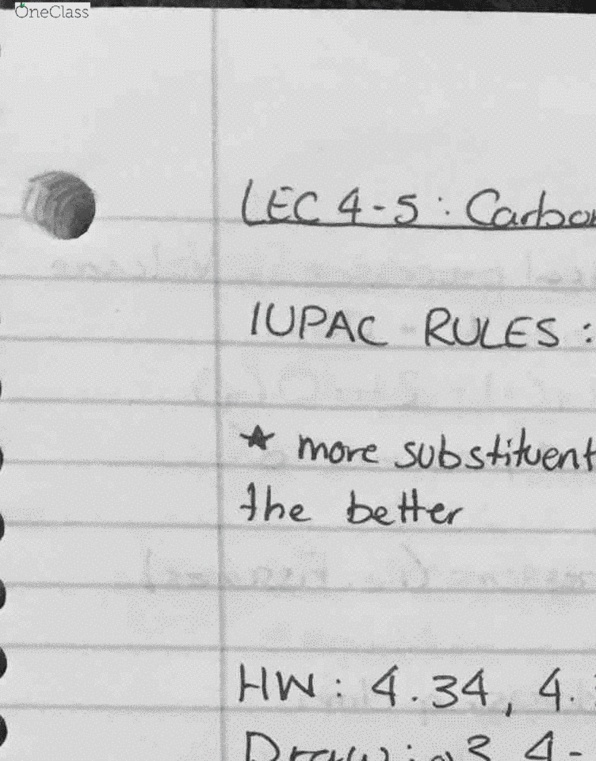 OneClass
LEC 4-5: Carbon
IUPAC RULES:
★ more substituent
the better
HW: 4.34, 4.
4-